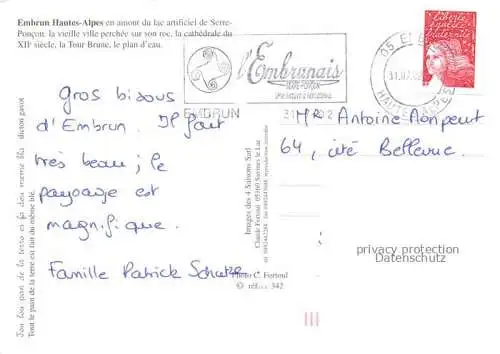 Embrun Hautes-Alpes en amont du lac artificiel de Serre-
Ponçon. la vieille ville perchée sur son roc, la cathédrale du
XIIe siècle, la Tour Brune, le plan d'eau.
l'Embrunais
SERRE-PONÇON
EMBRUN
05 EMBRUN
31.07.02
HAUTES ALPES
Liberté
égalité
fraternité
Gros bisous
d'Embrun. Il fait
très beau; le
paysage est
magnifique.
Famille Patrick
Mr Antoine
64, cité Bellevue.
Tout le pain de la terre est fait du même blé.
dicton gavot
Images des 4 Saisons Sarl
Claude Fortoul 05160 Savines le Lac
Photo C. Fortoul
© réf. 342
privacy protection
Datenschutz